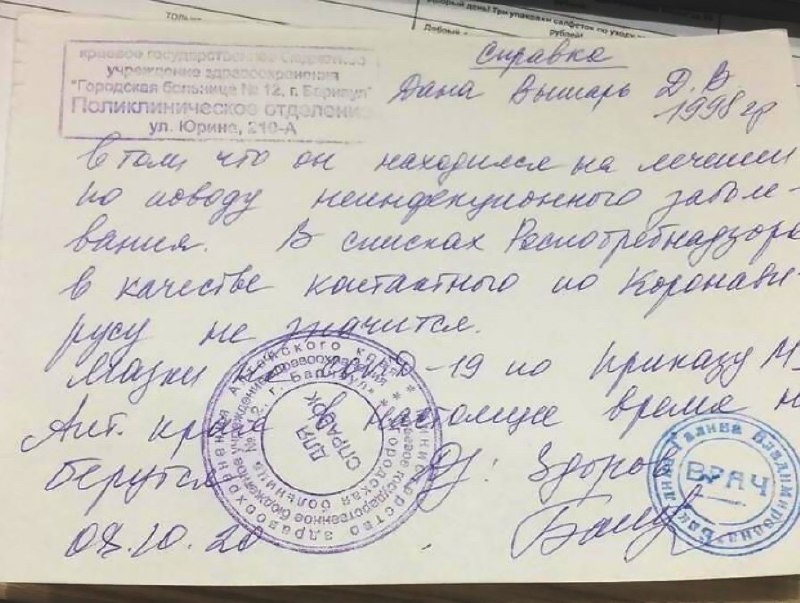 только
Добрый день! Три упаковки салфеток по уходу
рублей!
Добрый
краевое государственное бюджетное
учреждение здравоохранения
"Городская больница № 12, г. Барнаул"
Поликлиническое отделение
ул. Юрина, 210-А
Справка
Дана Вышарь Д. В
1998 гр
в том что он находился на лечении
по поводу неинфекционного заболе-
вания. В списках Роспотребнадзора
в качестве контактного по Коронави
русу не значится.
Мазки на COVID-19 по приказу М
Алт. края в настоящее время н
берутся Дз: Здоров
08.10.20
ДЛЯ СПРАВОК
Министерство здравоохранения Алтайского края
краевое государственное бюджетное учреждение здравоохранения
Городская больница № 12, г. Барнаул
Галина Владимировна
ВРАЧ